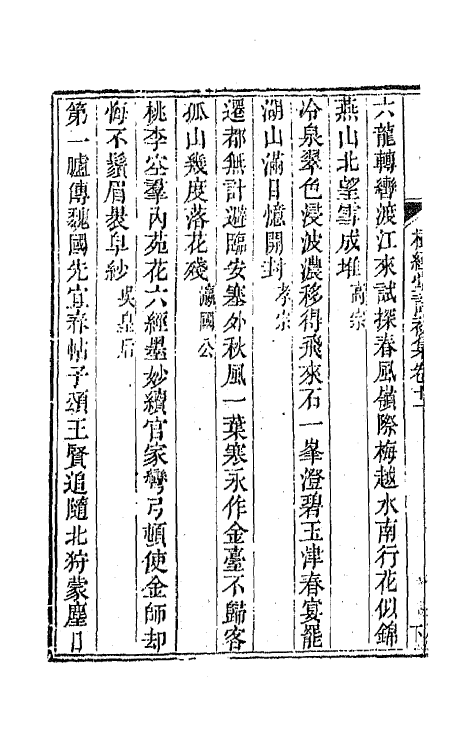 六龍轉轡渡江來試探春風嶺際梅越水南行花似錦
燕山北望雪成堆高宗
冷泉翠色浸波濃移得飛來石一峯澄碧玉津春宴罷
湖山滿目憶開封孝宗
遷都無計避臨安塞外秋風一葉寒永作金臺不歸客
孤山幾度落花殘瀛國公
桃李空羣內苑花六經墨妙續官家彎弓頓使金師却
悔不鬚眉裂皁紗吳皇后
第一臚傳魏國先宜春帖子頌王賢追隨北狩蒙塵日